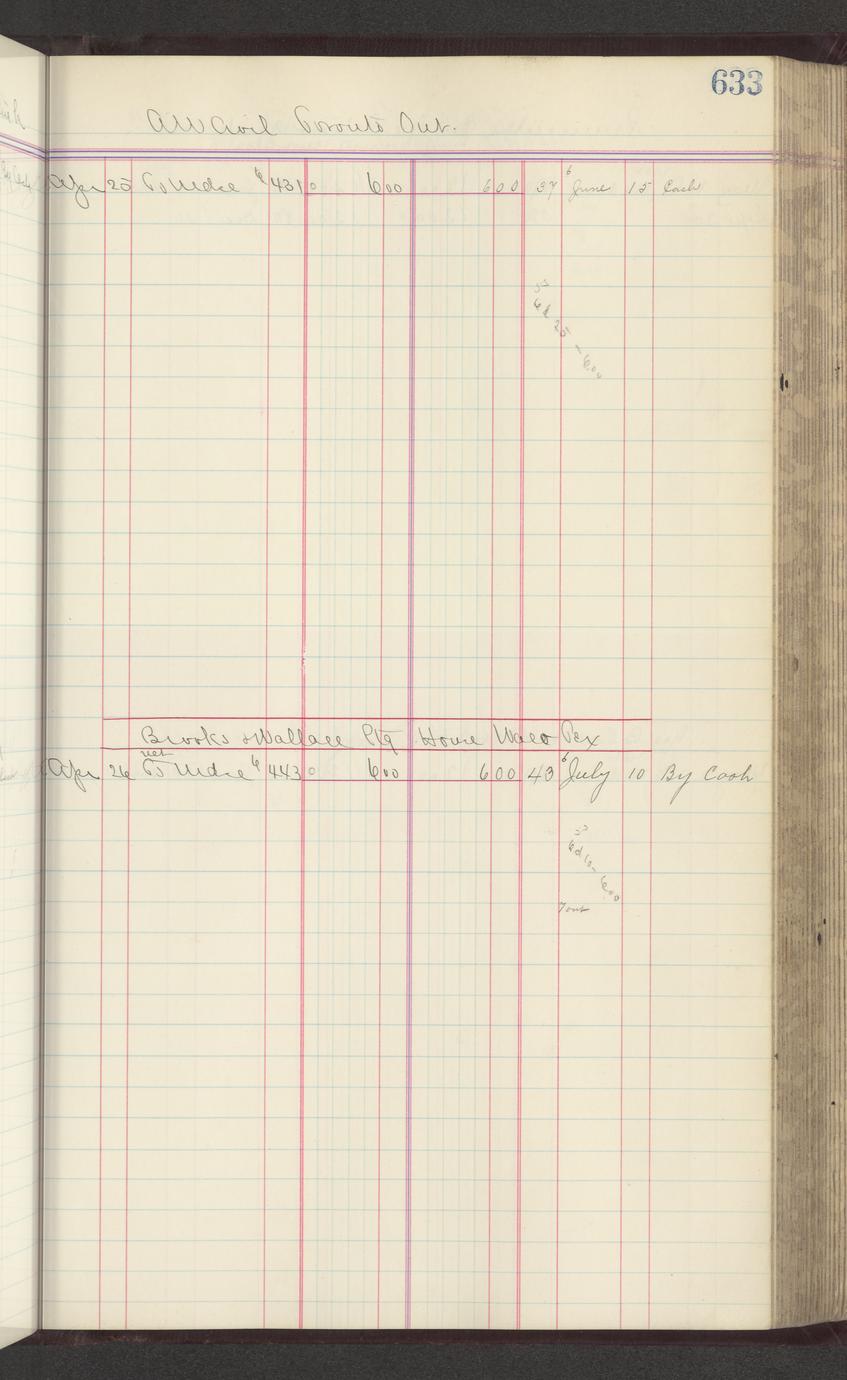 633
AW Avil Toronto Ont.
Apr 25 To Mdse 6 431 0 600 600 37 6 June 15 Cash
6d 25 - 600
Brooks & Wallace Ptg House Waco Tex
net
Apr 26 To Mdse 6 443 0 600 600 43 6 July 10 By Cash
6d 10 - 600